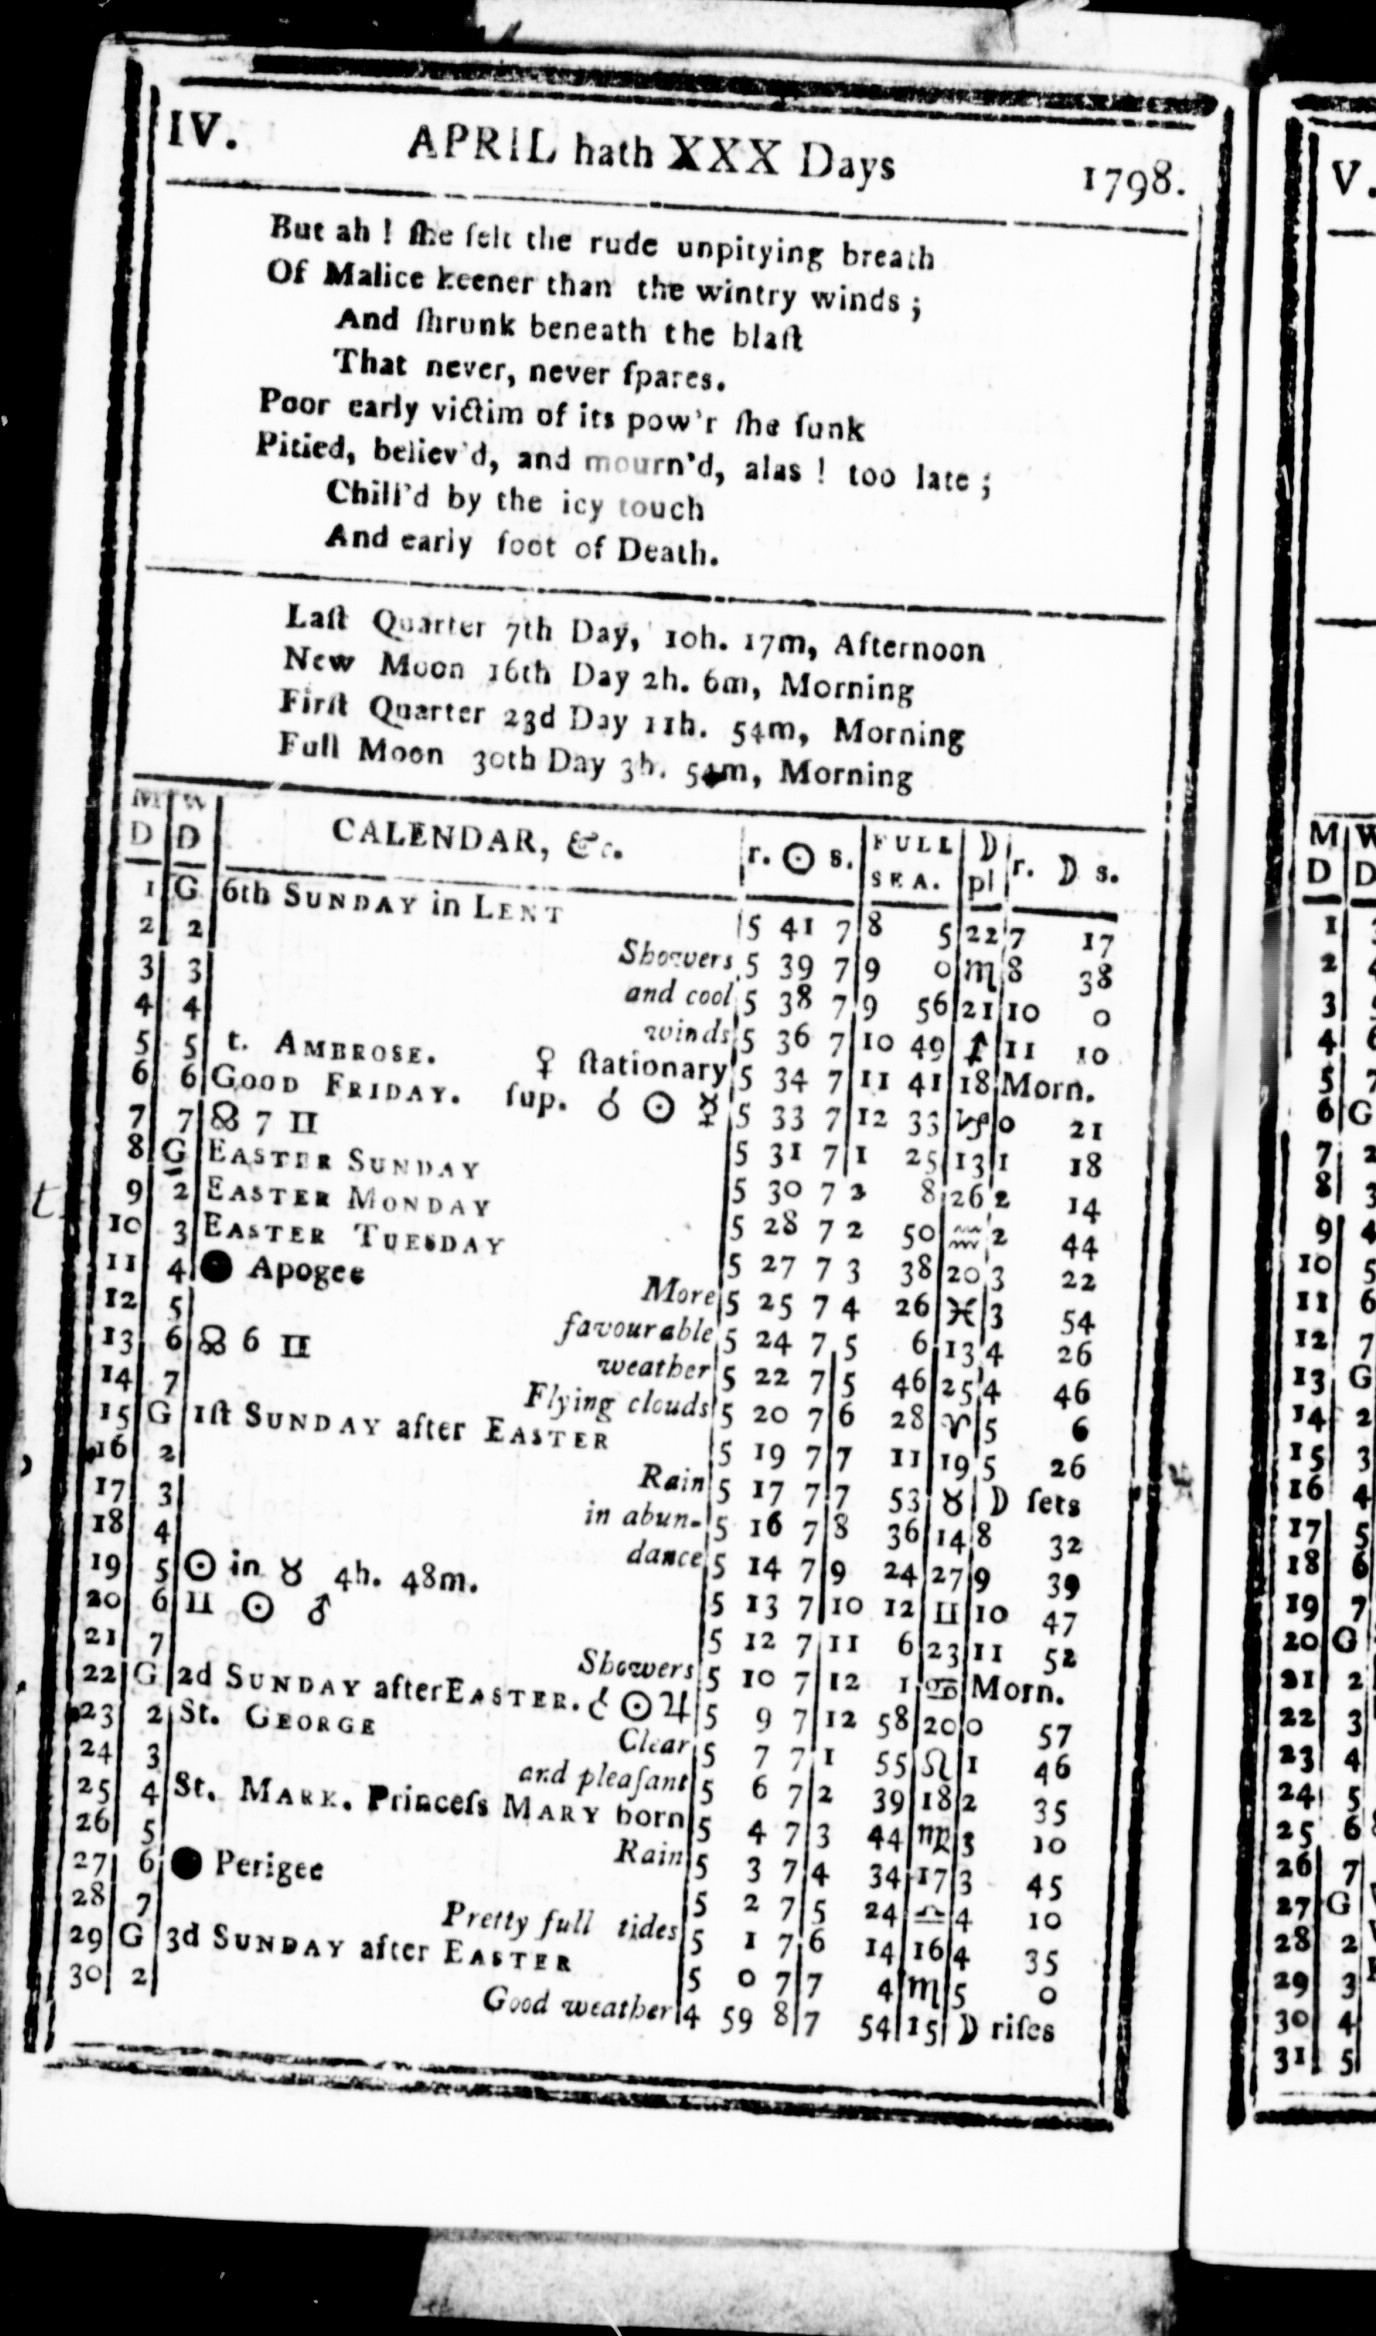 IV. APRIL hath XXX Days 1798.
But ah ! ſhe felt the rude unpitying breath
Of Malice keener than the wintry winds ;
And ſhrunk beneath the blaſt
That never, never ſpares.
Poor early victim of its pow'r ſhe ſunk
Pitied, believ'd, and mourn'd, alas ! too late ;
Chill'd by the icy touch
And early foot of Death.
Laſt Quarter 7th Day, 10h. 17m, Afternoon
New Moon 16th Day 2h. 6m, Morning
Firſt Quarter 23d Day 11h. 54m, Morning
Full Moon 30th Day 3h. 54m, Morning
M D W D CALENDAR, &c. r. ☉ s. FULL SEA. ☽ pl r. ☽ s.
1 G 6th SUNDAY in LENT 5 41 7 8 5 22 7 17
2 2 Showers 5 39 7 9 0 ♏ 8 38
3 3 and cool 5 38 7 9 56 21 10 0
4 4 winds 5 36 7 10 49 ♐ 11 10
5 5 t. AMBROSE. ♀ ſtationary 5 34 7 11 41 18 Morn.
6 6 GOOD FRIDAY. ſup. ☌ ☉ ☿ 5 33 7 12 33 ♑ 0 21
7 7 ☊ 7 ♊ 5 31 7 1 25 13 1 18
8 G EASTER SUNDAY 5 30 7 2 8 26 2 14
9 2 EASTER MONDAY 5 28 7 2 50 ♒ 2 44
10 3 EASTER TUESDAY 5 27 7 3 38 20 3 22
11 4 ● Apogee More 5 25 7 4 26 ♓ 3 54
12 5 favourable 5 24 7 5 6 13 4 26
13 6 ☊ 6 ♊ weather 5 22 7 5 46 25 4 46
14 7 Flying clouds 5 20 7 6 28 ♈ 5 6
15 G 1ſt SUNDAY after EASTER 5 19 7 7 11 19 5 26
16 2 Rain 5 17 7 7 53 ♉ ☽ ſets
17 3 in abun- 5 16 7 8 36 14 8 32
18 4 dance 5 14 7 9 24 27 9 39
19 5 ☉ in ♉ 4h. 48m. 5 13 7 10 12 ♊ 10 47
20 6 ♊ ☉ ♂ 5 12 7 11 6 23 11 52
21 7 Showers 5 10 7 12 1 ♋ Morn.
22 G 2d SUNDAY after EASTER. ☌ ☉ ♃ 5 9 7 12 58 20 0 57
23 2 St. GEORGE Clear 5 7 7 1 55 ♌ 1 46
24 3 and pleaſant 5 6 7 2 39 18 2 35
25 4 St. MARK. Princeſs MARY born 5 4 7 3 44 ♍ 3 10
26 5 Rain 5 3 7 4 34 17 3 45
27 6 ● Perigee 5 2 7 5 24 ♎ 4 10
28 7 Pretty full tides 5 1 7 6 14 16 4 35
29 G 3d SUNDAY after EASTER 5 0 7 7 4 ♏ 5 0
30 2 Good weather 4 59 8 7 54 15 ☽ riſes
t
V.
M W
D D
1
2
3
4 6
5 7
6 G
7 2
8 3
9 4
10 5
11 6
12 7
13 G
14 2
15 3
16 4
17 5
18 6
19 7
20 G
21 2
22 3
23 4
24 5
25 6
26 7
27 G
28 2
29 3
30 4
31 5